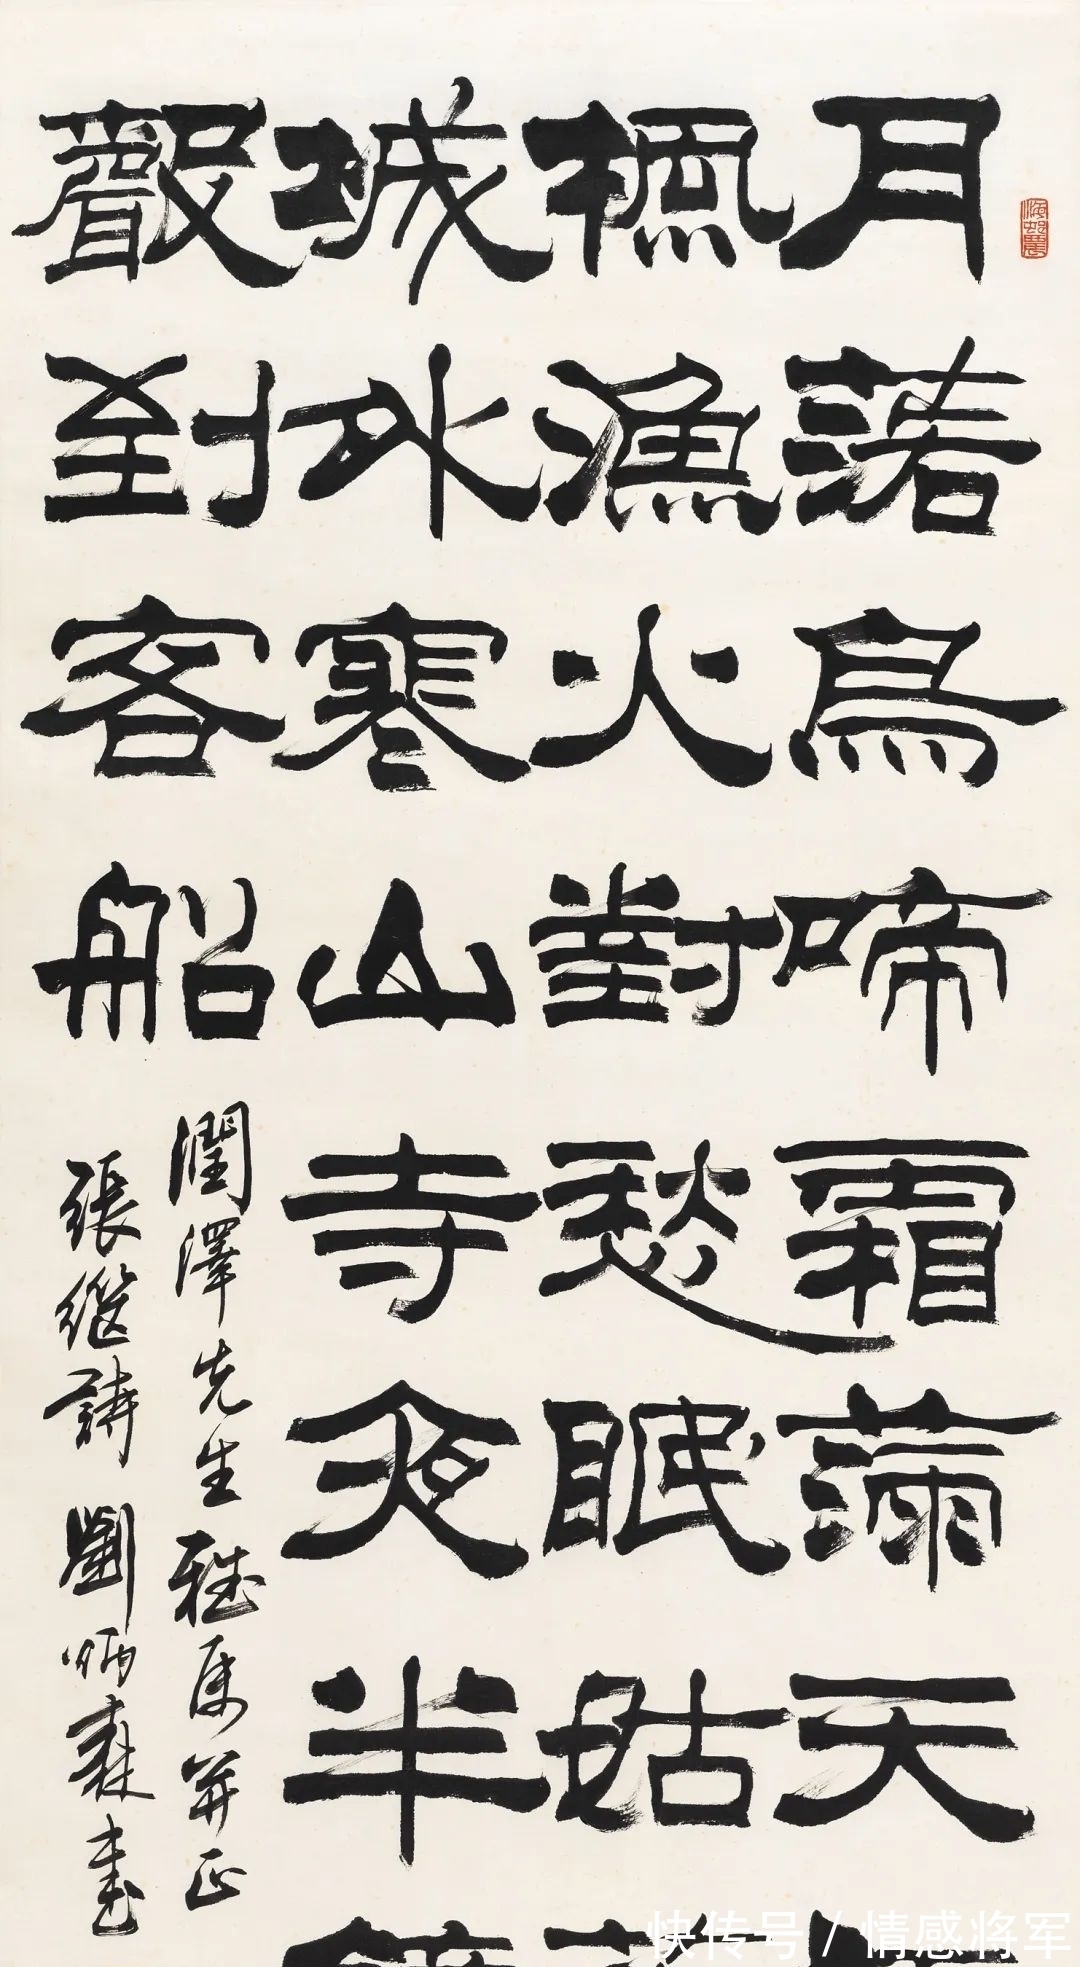 月落烏啼霜滿天
楓漁火對愁眠姑
城外寒山寺夜半
聲到客船
潤澤先生雅屬并正
張繼詩 劉炳森書
快传号 / 情感将军